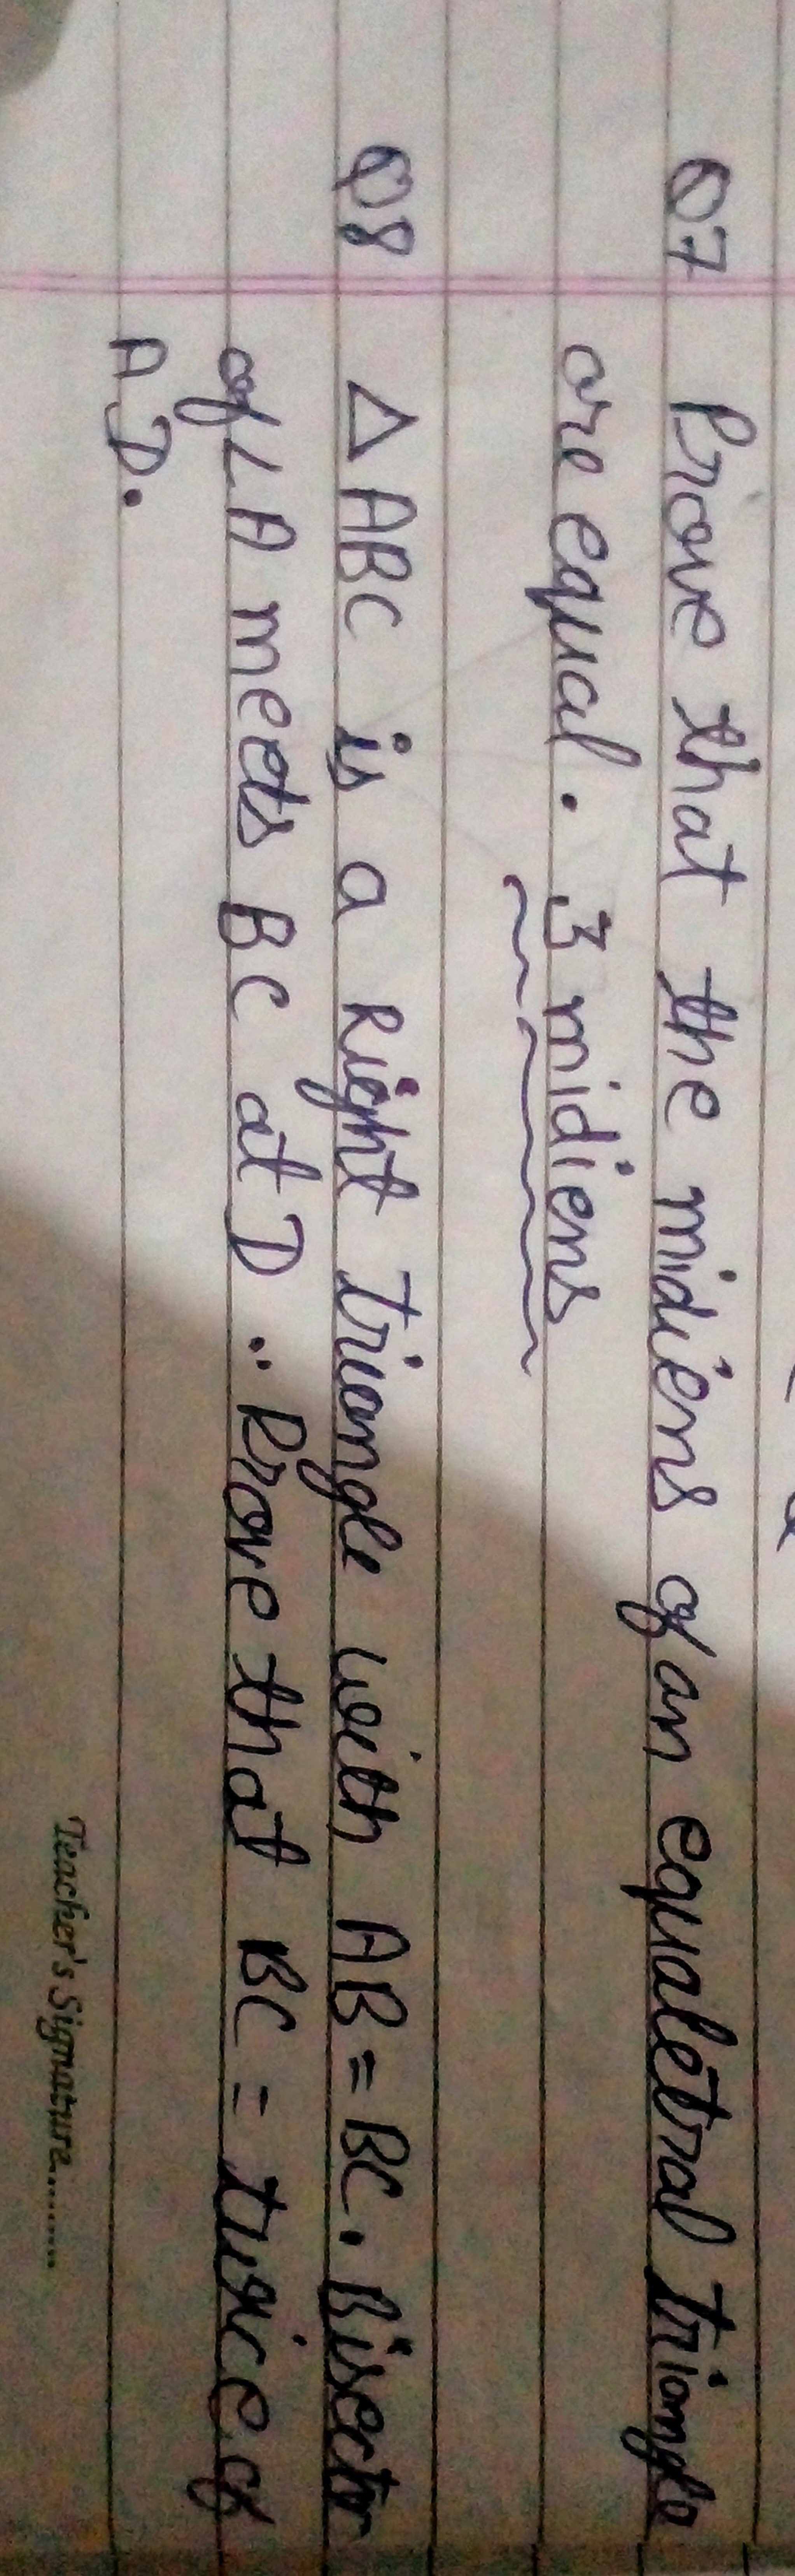 Q7 Prove that the midiens of an equaletral Triangle
are equal. 3 midiens
Q8 △ ABC is a Right Triangle with AB = BC. Bisector
of ∠A meets BC at D. Prove that BC = twice of
AD.
Teacher's Signature........